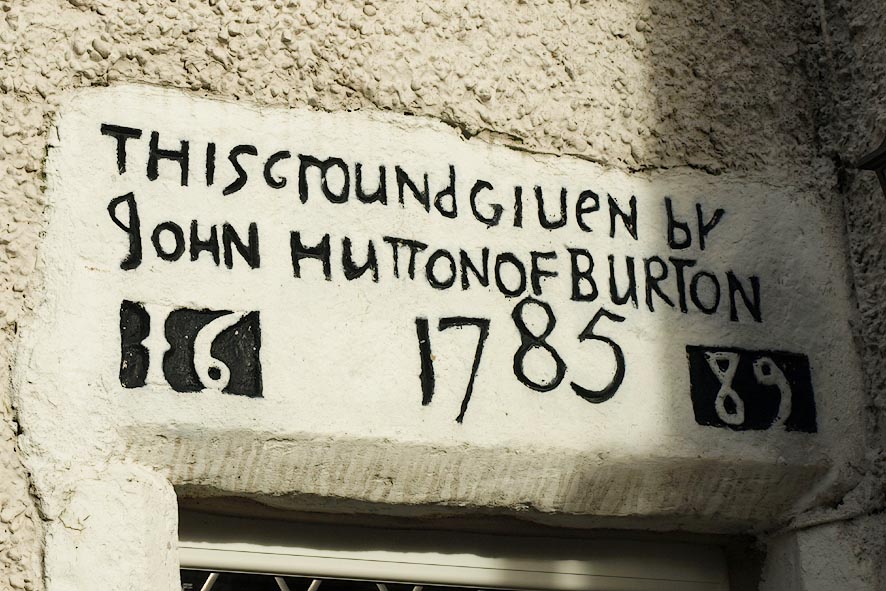 THIS GrOUNd GIUeN bY
JOHN HUTTON OF BURTON
16 1785 89